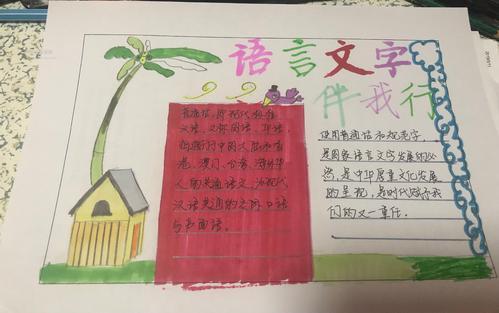 语言文字
伴我行
普通话,即现代标准
汉语,又称国语、华语,
是通行于中国大陆和香
港、澳门、台湾、海外华
人的共通语文,为现代
汉语共通的交际口语
与书面语。
使用普通话和规范字
是国家语言文字发展的必
然,是中华民族文化发展
的呈现,是时代赋予我
们的又一责任。